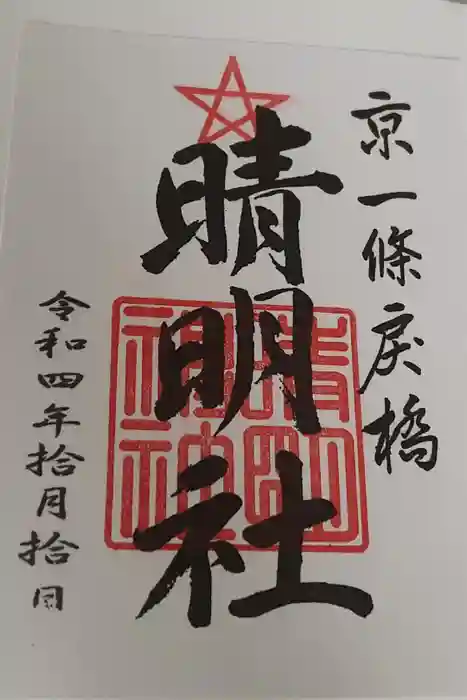 京一條戻橋
晴明社
令和四年拾月拾日
晴明神社